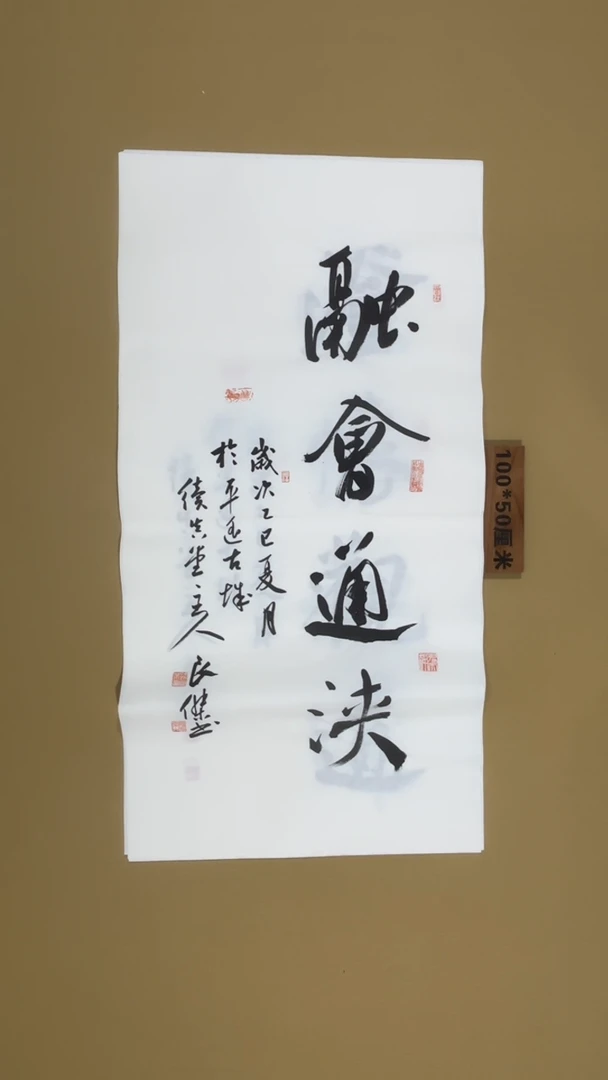 融會通浹
歲次乙巳夏月
於平遙古城
續古堂主人
良傑書
100*50厘米